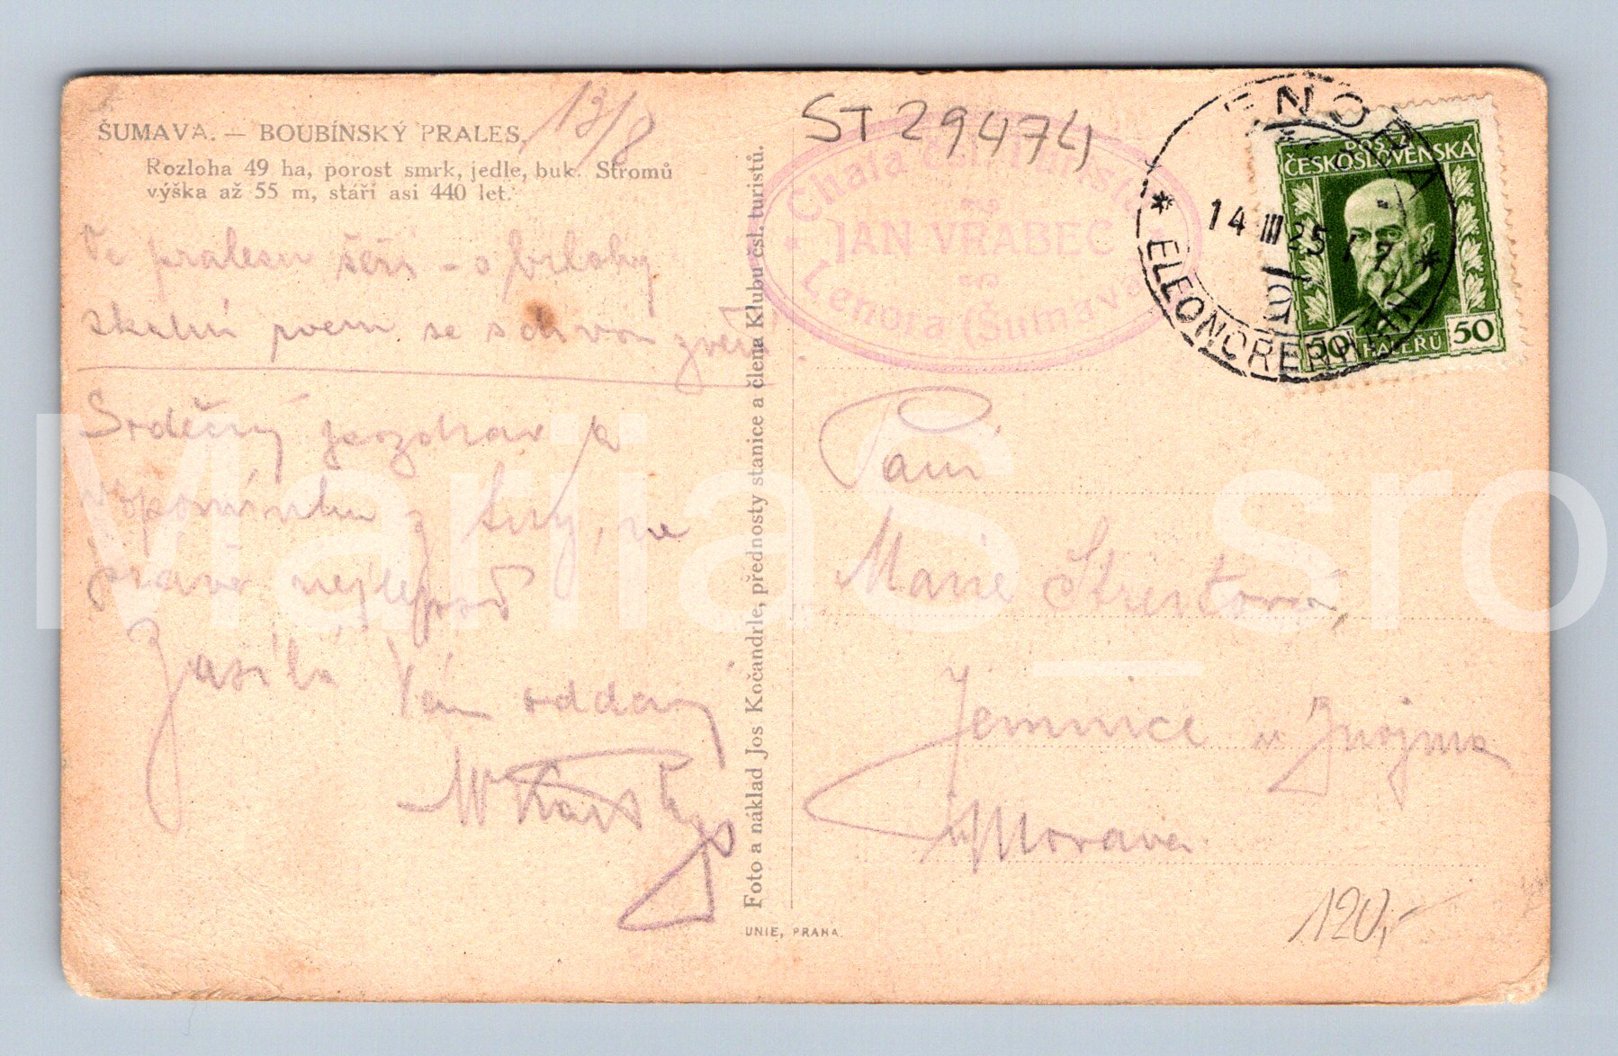 ŠUMAVA. — BOUBÍNSKÝ PRALES.
13/8
Rozloha 49 ha, porost smrk, jedle, buk. Stromů
výška až 55 m, stáří asi 440 let.
Ve pralesu šéří - o brlohy
skalní se zvěř
Srdečný pozdrav a
vzpomínku z túry, ne
právě nejlepší
Zasílá Vám oddaný
Foto a náklad Jos Kočandrle, přednosty stanice a člena Klubu čsl. turistů.
UNIE, PRAHA.
ST29474
Chata čsl. Turistů
JAN VRABEC
Lenora (Šumava)
LENORA
* 14 III 25 *
ELEONORENHAIN
POŠTA
ČESKOSLOVENSKÁ
50 HALÉŘŮ 50
Paní
Marie
Jemnice u Znojma
Morava.
120,-
MariiaS_sro